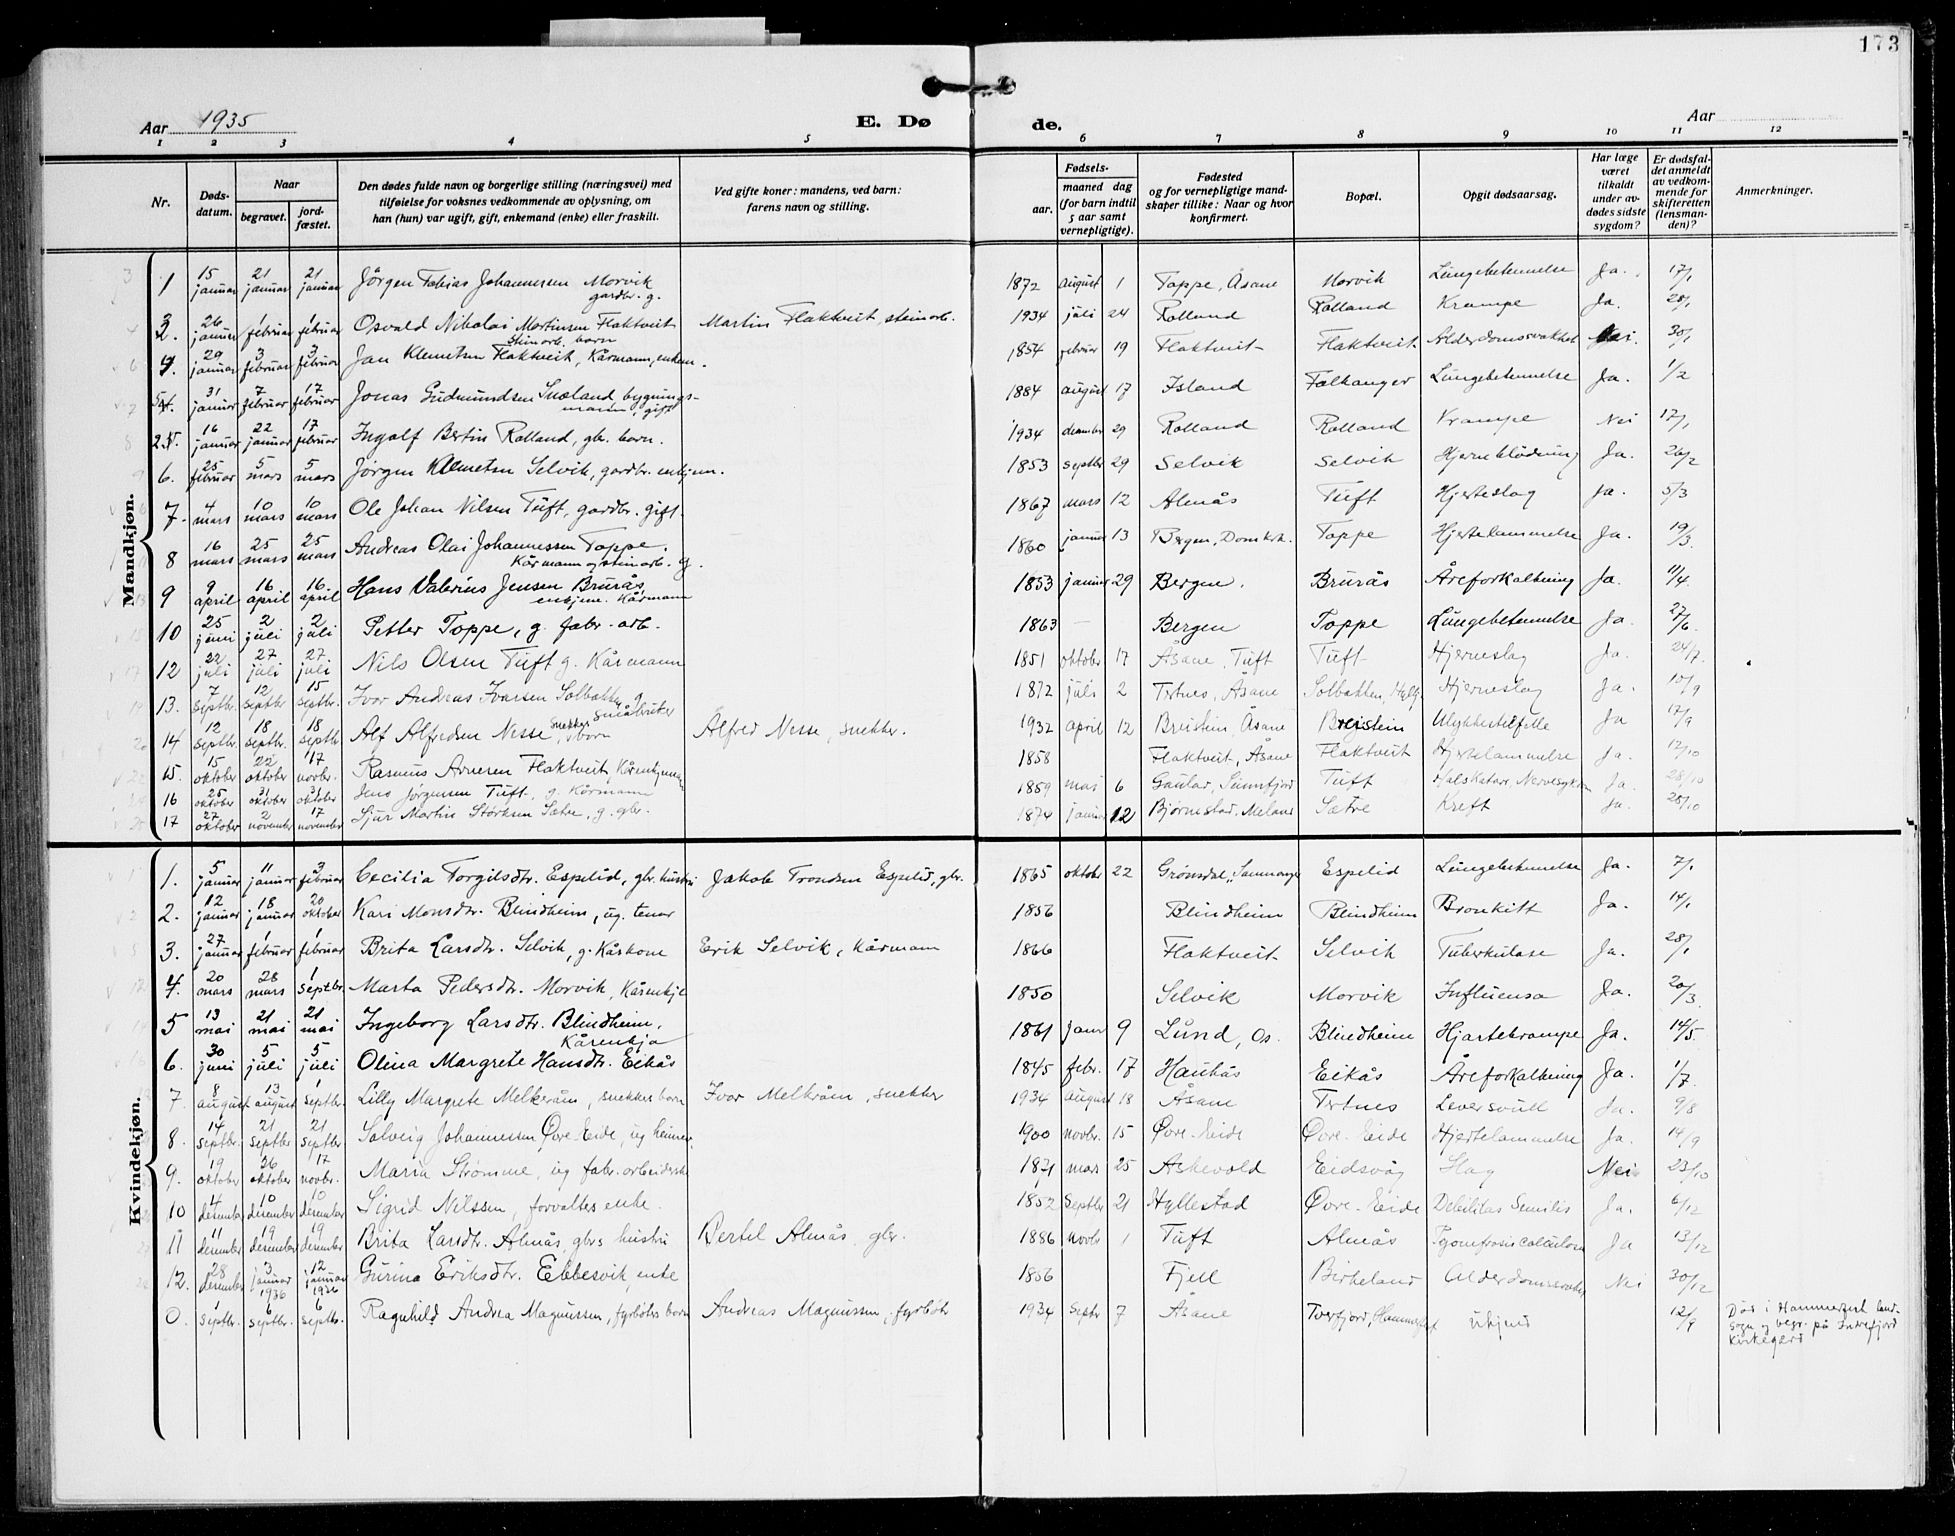 173
Aar 1935
E. Dø de.
Aar
1 2 3 4 5 6 7 8 9 10 11 12
Nr.
Døds-
datum.
Naar
begravet.
jord-
fæstet.
Den dødes fulde navn og borgerlige stilling (næringsvei) med
tilføielse for voksnes vedkommende av oplysning, om
han (hun) var ugift, gift, enkemand (enke) eller fraskilt.
Ved gifte koner: mandens, ved barn:
farens navn og stilling.
Fødsels-
aar.
maaned dag
(for barn indtil
5 aar samt
vernepligtige).
Fødested
og for vernepligtige mand-
skaper tillike: Naar og hvor
konfirmert.
Bopæl.
Opgit dødsaarsag.
Har læge
været
tilkaldt
under av-
dødes sidste
sygdom?
Er dødsfal-
det anmeldt
av vedkom-
mende for
skifteretten
(lensman-
den)?
Anmerkninger.
Mandkjøn.
1 15 januar 21 januar 21 januar Jørgen Tobias Johannessen Morvik gardbr. g. 1872 august 1 Toppe, Åsane Morvik Lungebetennelse Ja. 17/1
3 26 januar 1 februar 1 februar Osvald Nikolai Mortinsen Flaktveit steinarb. barn Martin Flaktveit, steinarb. 1934 juli 24 Rolland Rolland Krampe Ja. 28/1
4. 29 januar 3 februar 3 februar Jan Klemetsen Flaktveit, Kårmann, enkem. 1854 februar 19 Flaktveit Flaktveit Alderdomssvakhet Nei. 30/1
5. 31 januar 7 februar 17 februar Jonas Gudmundsen Snæland bygnings- mann, gift 1884 august 17 Island Falkanger Lungebetennelse Ja. 1/2
2. 16 januar 22 januar 17 februar Ingolf Bertin Rolland, gbr. barn. 1934 desember 29 Rolland Rolland Krampe Nei 17/1
6. 25 februar 5 mars 5 mars Jørgen Klemetsen Selvik, gardbr. enkjem. 1853 septbr 29 Selvik Selvik Hjerneblødning Ja. 26/2
7. 4 mars 10 mars 10 mars Ole Johan Nilsen Tuft, gardbr. gift. 1867 mars 12 Almås Tuft Hjerteslag Ja. 5/3
8 16 mars 25 mars 25 mars Andreas Olai Johannessen Toppe. Kårmann og steinarb. g. 1860 januar 13 Bergen, Domk. Toppe Hjertelammelse Ja. 19/3.
9 9 april 16 april 16 april Hans Valerius Jensen Brurås enkjem. Kårmann 1853 januar 29 Bergen. Brurås Åreforkalkning Ja. 11/4.
10 25 juni 2 juli 2 juli Petter Toppe, g. fabr. arb. 1863 — Bergen Toppe Lungebetennelse Ja. 27/6.
12 22 juli 27 juli 27 juli Nils Olsen Tuft g. Kårmann 1851 oktober 17 Åsane, Tuft Tuft Hjerneslag Ja. 24/7.
13. 7 septbr. 12 septbr 15 septbr. Ivar Andreas Ivarsen Solbakken g småbruker 1872 juli 2 Tertnes, Åsane Solbakken, Hjerneslag Ja. 10/9
14 12 septbr. 18 septbr. 18 septbr Alf Alfredsen Nesse, snekker barn Alfred Nesse, snekker. 1932 april 12 Breistein, Åsane Breistein Ulykkestilfelle Ja 17/9
15. 15 oktober 22 oktober 17 novbr. Rasmus Arnesen Flaktveit, Kårenkjemann 1858 Flaktveit, Åsane Flaktveit Hjertelammelse Ja. 12/10
16 25 oktober 31 oktober 31 oktober Jens Jørgensen Tuft, g. Kårmann 1859 mai 6 Gaular, Sunnfjord Tuft Halskatarr Nervesykdom Ja. 28/10
17 27 oktober 2 november 17 november Sjur Martin Størksen Sætre, g. gbr. 1874 januar 12 Bjørnestad, Meland Sætre Kreft Ja. 28/10
Kvindekjøn.
1. 5 januar 11 januar 3 februar Cecilia Torgilsdtr. Espelid, gbr. hustru Jakob Trondsen Espelid, gbr. 1865 oktober 22 Grønsdal, Samnanger Espelid Lungebetennelse Ja. 7/1
2. 12 januar 18 januar 20 oktober Kari Monsdtr. Blindheim, ug. tenar 1856 Blindheim Blindheim Bronkitt Ja. 14/1
3. 27 januar 1 februar 1 februar Brita Larsdtr. Selvik, g. Kårkone Erik Selvik, Kårmann 1866 Flaktveit Selvik Tuberkulose Ja. 28/1
4. 20 mars 28 mars 1 septbr. Marta Pedersdtr. Morvik, Kårenkje 1850 Selvik Morvik Influensa Ja. 20/3
5 13 mai 21 mai 21 mai Ingeborg Larsdtr. Blindheim, Kårenkja 1861 janr 9 Lund, Os. Blindheim Hjartekrampe Ja. 14/5.
6. 30 juni 5 juli 5 juli Olina Margrete Hansdtr. Eikås 1845 febr. 17 Haukås Eikås Åreforkalkning Ja. 1/7.
7. 8 august 13 august 1 septbr. Lilly Margrete Melkeråm, snekker barn Ivar Melkråm, snekker 1934 august 18 Åsane Tertnes Leversvull Ja. 9/8
8. 14 septbr. 21 septbr 21 septbr Solveig Johannessen Øvre-Eide, ug 1900 novbr. 15 Øvre-Eide Øvre-Eide Hjertelammelse Ja. 14/9
9. 19 oktober 26 oktober 17 novbr. Maria Strømme, ug fabr. arbeiderske 1871 mars 25 Askevold Eidsvåg Slag Nei 23/10
10 4 desember 10 desember 10 desember Sigrid Nilssen, forvalters enke. 1852 Septbr 21 Hyllestad Øvre-Eide Debilitas Senilis Ja. 6/12
11 11 desember 19 desember 19 desember Brita Larsdtr. Almås, gbrs hustru Bertel Almås, gbr. 1886 novbr 1 Tuft Almås Ja 13/12
12. 28 desember 3 januar 1936 12 januar 1936 Gurina Eriksdtr. Ebbesvik, enke 1856 Fjell Birkeland Alderdomssvakhet Nei 30/12
0. 1 septbr. 6 septbr. 6 septbr. Ragnhild Andrea Magnussen, fyrbøters barn Andreas Magnussen, fyrbøter 1934 Septbr 7 Åsane Tverfjord, Hammerfest ukjend 12/9 Død i Hammerfest land- sogn og begr. på Indrefjord Kirkegård